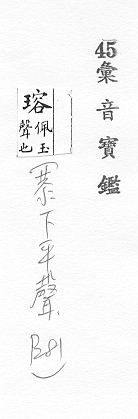 45彙音寶鑑
瑢 佩玉聲也
(恭下平聲.
B81)